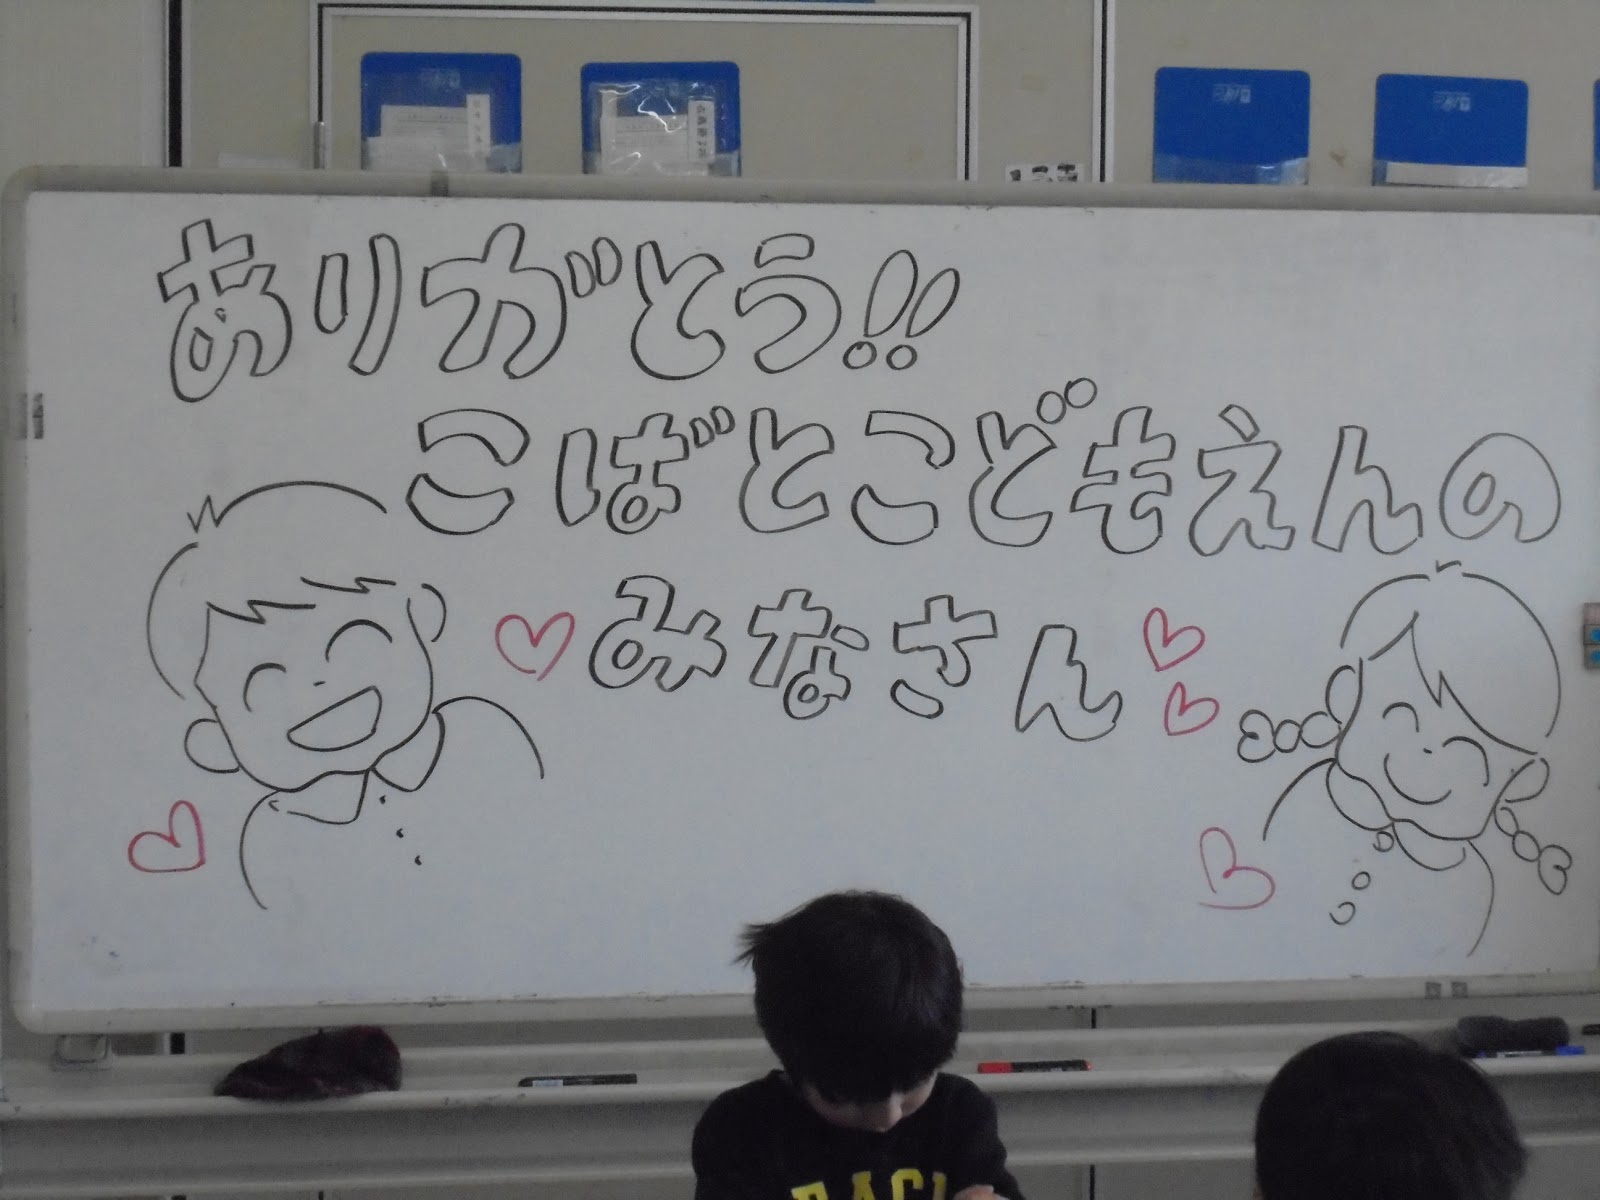 ありがとう!!
こばとこどもえんの
みなさん